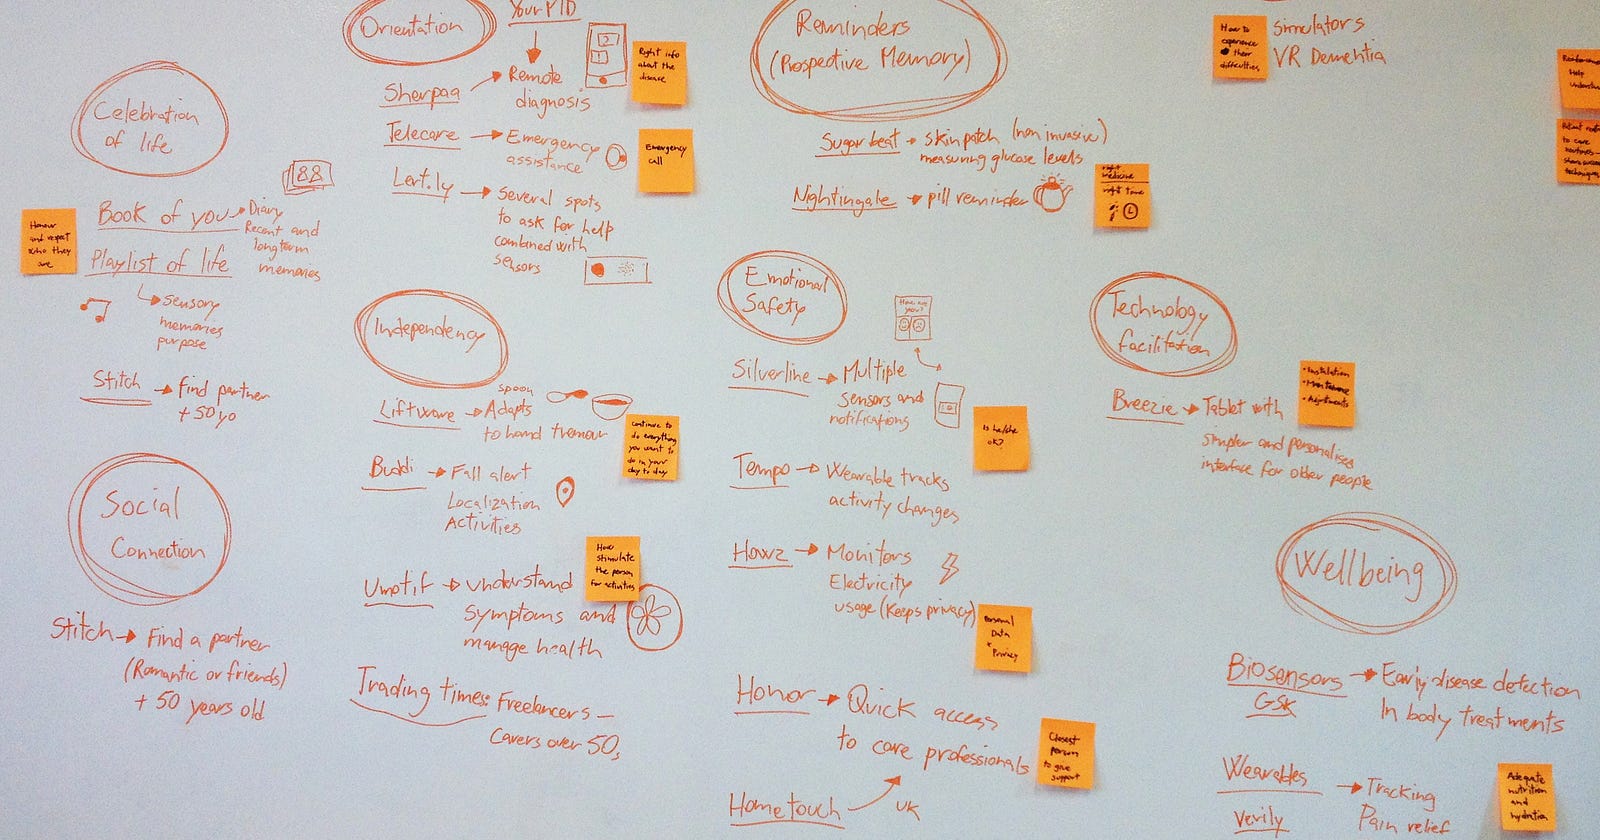 Celebration
of life
Honour
and respect
who they
are
Book of you → Diary
Recent and
long term
memories
Playlist of life
sensory
memories
purpose
Stitch → find partner
+ 50 yo
Social
Connection
Stitch → Find a partner
(Romantic or friends)
+ 50 years old
Orientation
Your PID
2
1
Right info
about the
disease
Sherpaa → Remote
diagnosis
Telecare → Emergency
assistance
Emergency
call
Lert.ly → Several spots
to ask for help
combined with
sensors
Independency
spoon
Liftware → Adapts
to hand tremour
continue to
do everything
you want to
do in your
day to day
Buddi → Fall alert
Localization
Activities
How
stimulate
the person
for activities
Umotif → understand
symptoms and
manage health
Trading times: Freelancers –
Carers over 50s
Reminders
(Prospective Memory)
Sugarbeat → skin patch (non invasive)
measuring glucose levels
Nightingale → pill reminder
right
medicine
right time
Emotional
Safety
How are
you?
Silverline → Multiple
sensors and
notifications
Is he/she
ok?
Tempo → Wearable tracks
activity changes
Howz → Monitors
Electricity
usage (Keeps privacy)
Personal
Data
+
Privacy
Honor → Quick access
to care professionals
Closest
person
to give
support
Hometouch
UK
How to
experience
their
difficulties
Simulators
VR Dementia
Help
to care
routines –
techniques
Technology
facilitation
• Installation
• Maintenance
• Adjustments
Breezie → Tablet with
simpler and personalised
interface for older people
Wellbeing
Biosensors → Early disease detection
GSK
In body treatments
Wearables → Tracking
Verily
Pain relief
Adequate
nutrition
and
hydration